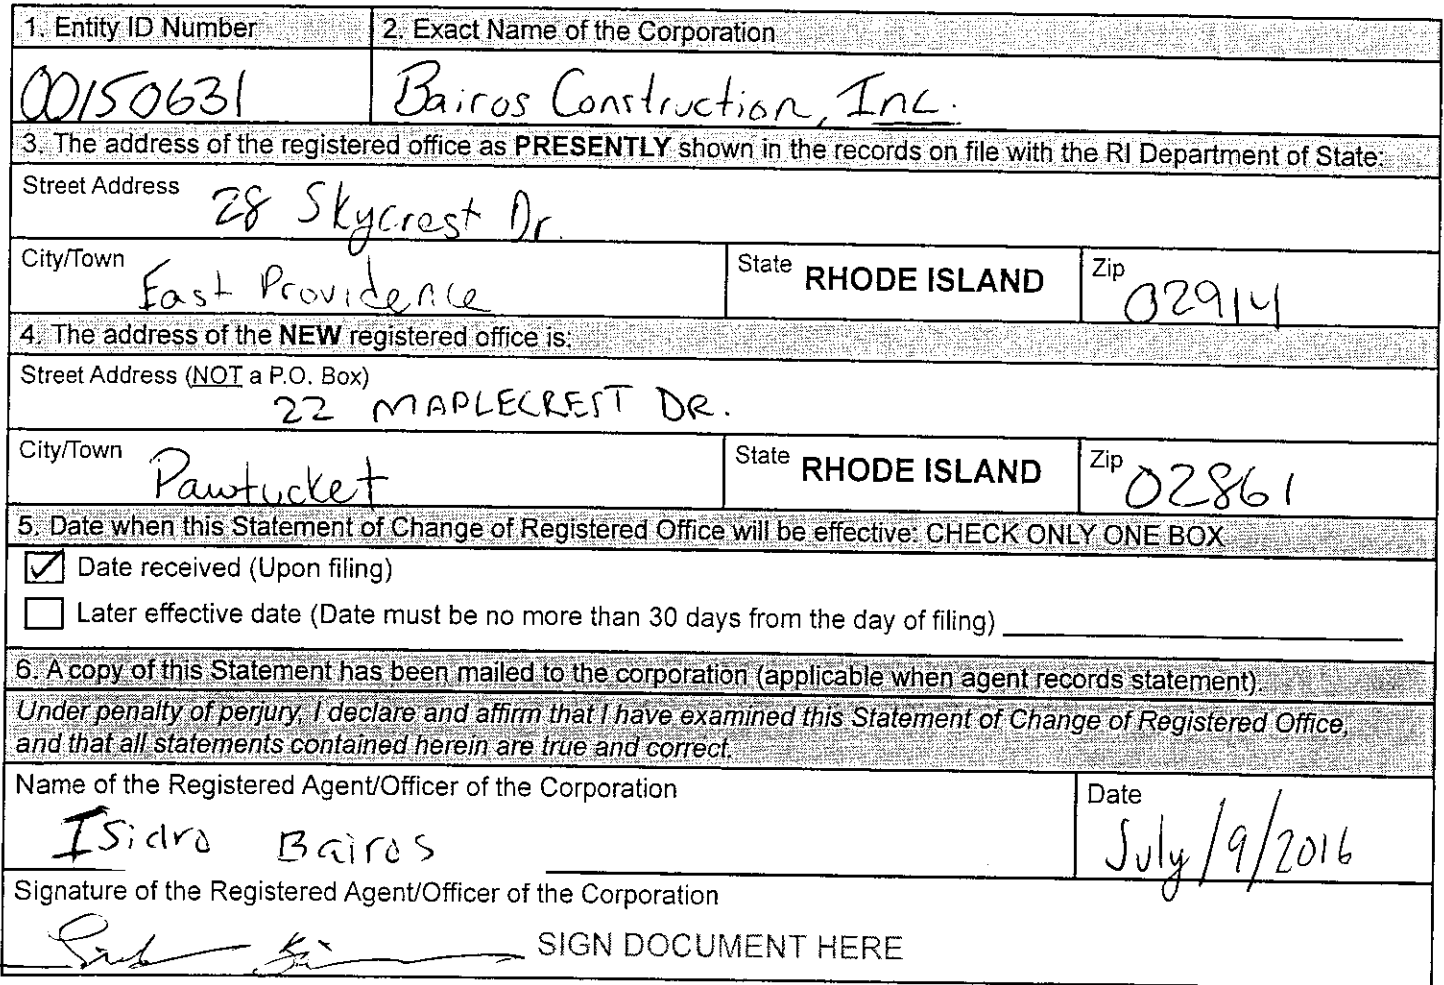 1. Entity ID Number 2. Exact Name of the Corporation
00150631 Bairos Construction, Inc.
3. The address of the registered office as PRESENTLY shown in the records on file with the RI Department of State:
Street Address 28 Skycrest Dr.
City/Town East Providence State RHODE ISLAND Zip 02914
4. The address of the NEW registered office is:
Street Address (NOT a P.O. Box)
22 MAPLECREST DR.
City/Town Pawtucket State RHODE ISLAND Zip 02861
5. Date when this Statement of Change of Registered Office will be effective: CHECK ONLY ONE BOX
Date received (Upon filing)
Later effective date (Date must be no more than 30 days from the day of filing)
6. A copy of this Statement has been mailed to the corporation (applicable when agent records statement).
Under penalty of perjury, I declare and affirm that I have examined this Statement of Change of Registered Office,
and that all statements contained herein are true and correct.
Name of the Registered Agent/Officer of the Corporation Date
Isidro Bairos July/9/2016
Signature of the Registered Agent/Officer of the Corporation
SIGN DOCUMENT HERE